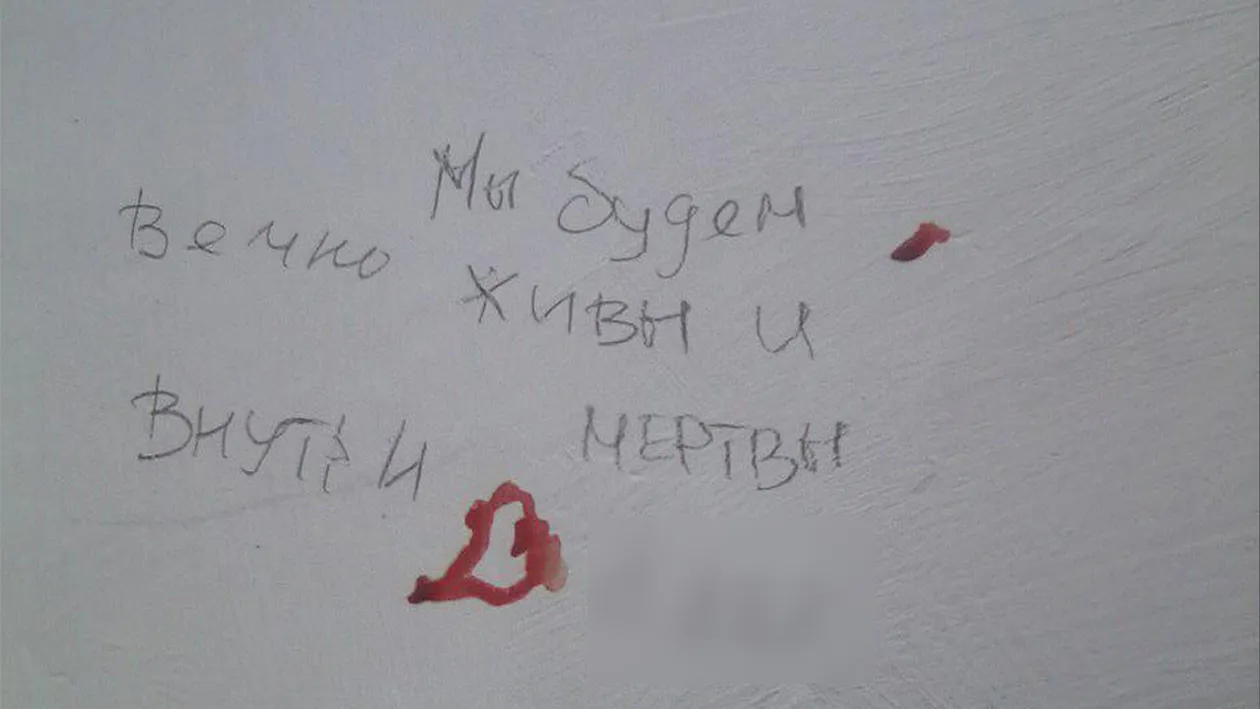 Мы будем
Вечно живы и
ВНУТРИ МЕРТВЫ